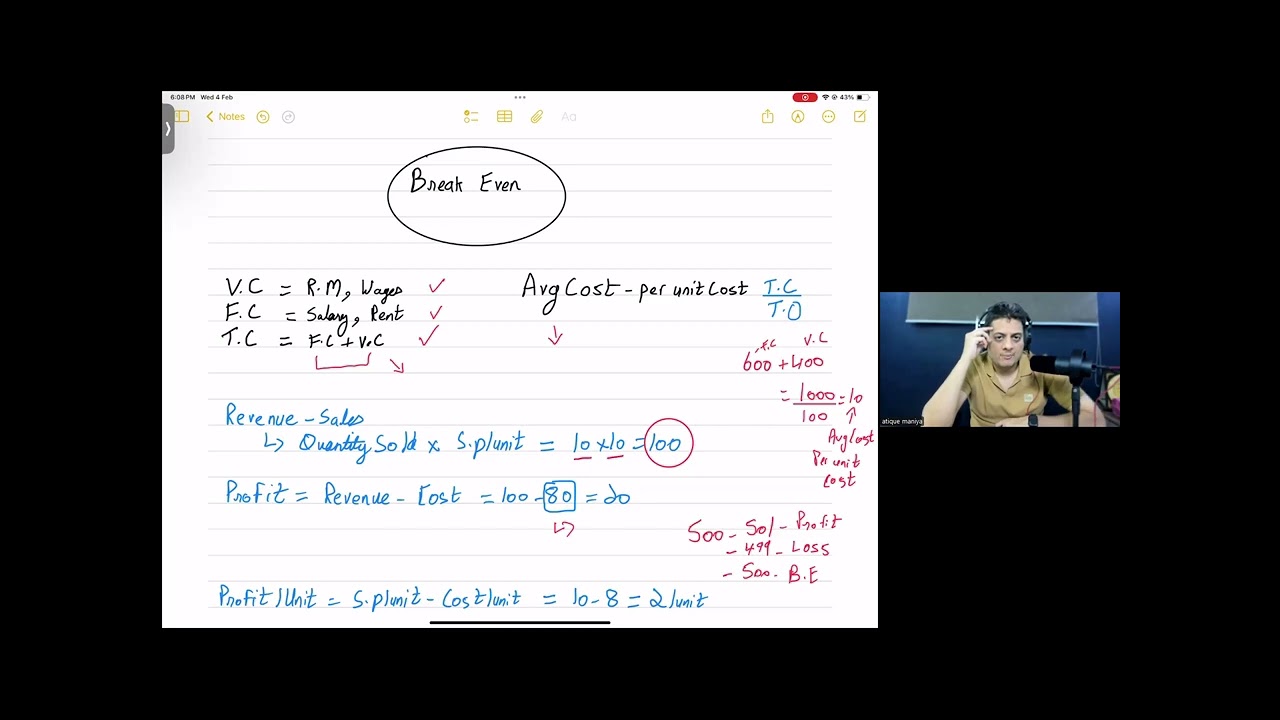 6:08 PM Wed 4 Feb
43%
Notes
Aa
Break Even
V.C = R.M, Wages
F.C = Salary, Rent
T.C = F.C + V.C
Avg Cost - per unit Cost T.C / T.O
F.C V.C
600 + 400
= 1000 / 100 = 10
Avg/cost
Per unit
Cost
Revenue - Sales
↳ Quantity Sold x S.p/unit = 10 x 10 = 100
Profit = Revenue - Cost = 100 - 80 = 20
500 - 501 - Profit
- 499 - Loss
- 500 - B.E
Profit/Unit = S.p/unit - Cost/unit = 10 - 8 = 2/unit
atique maniya